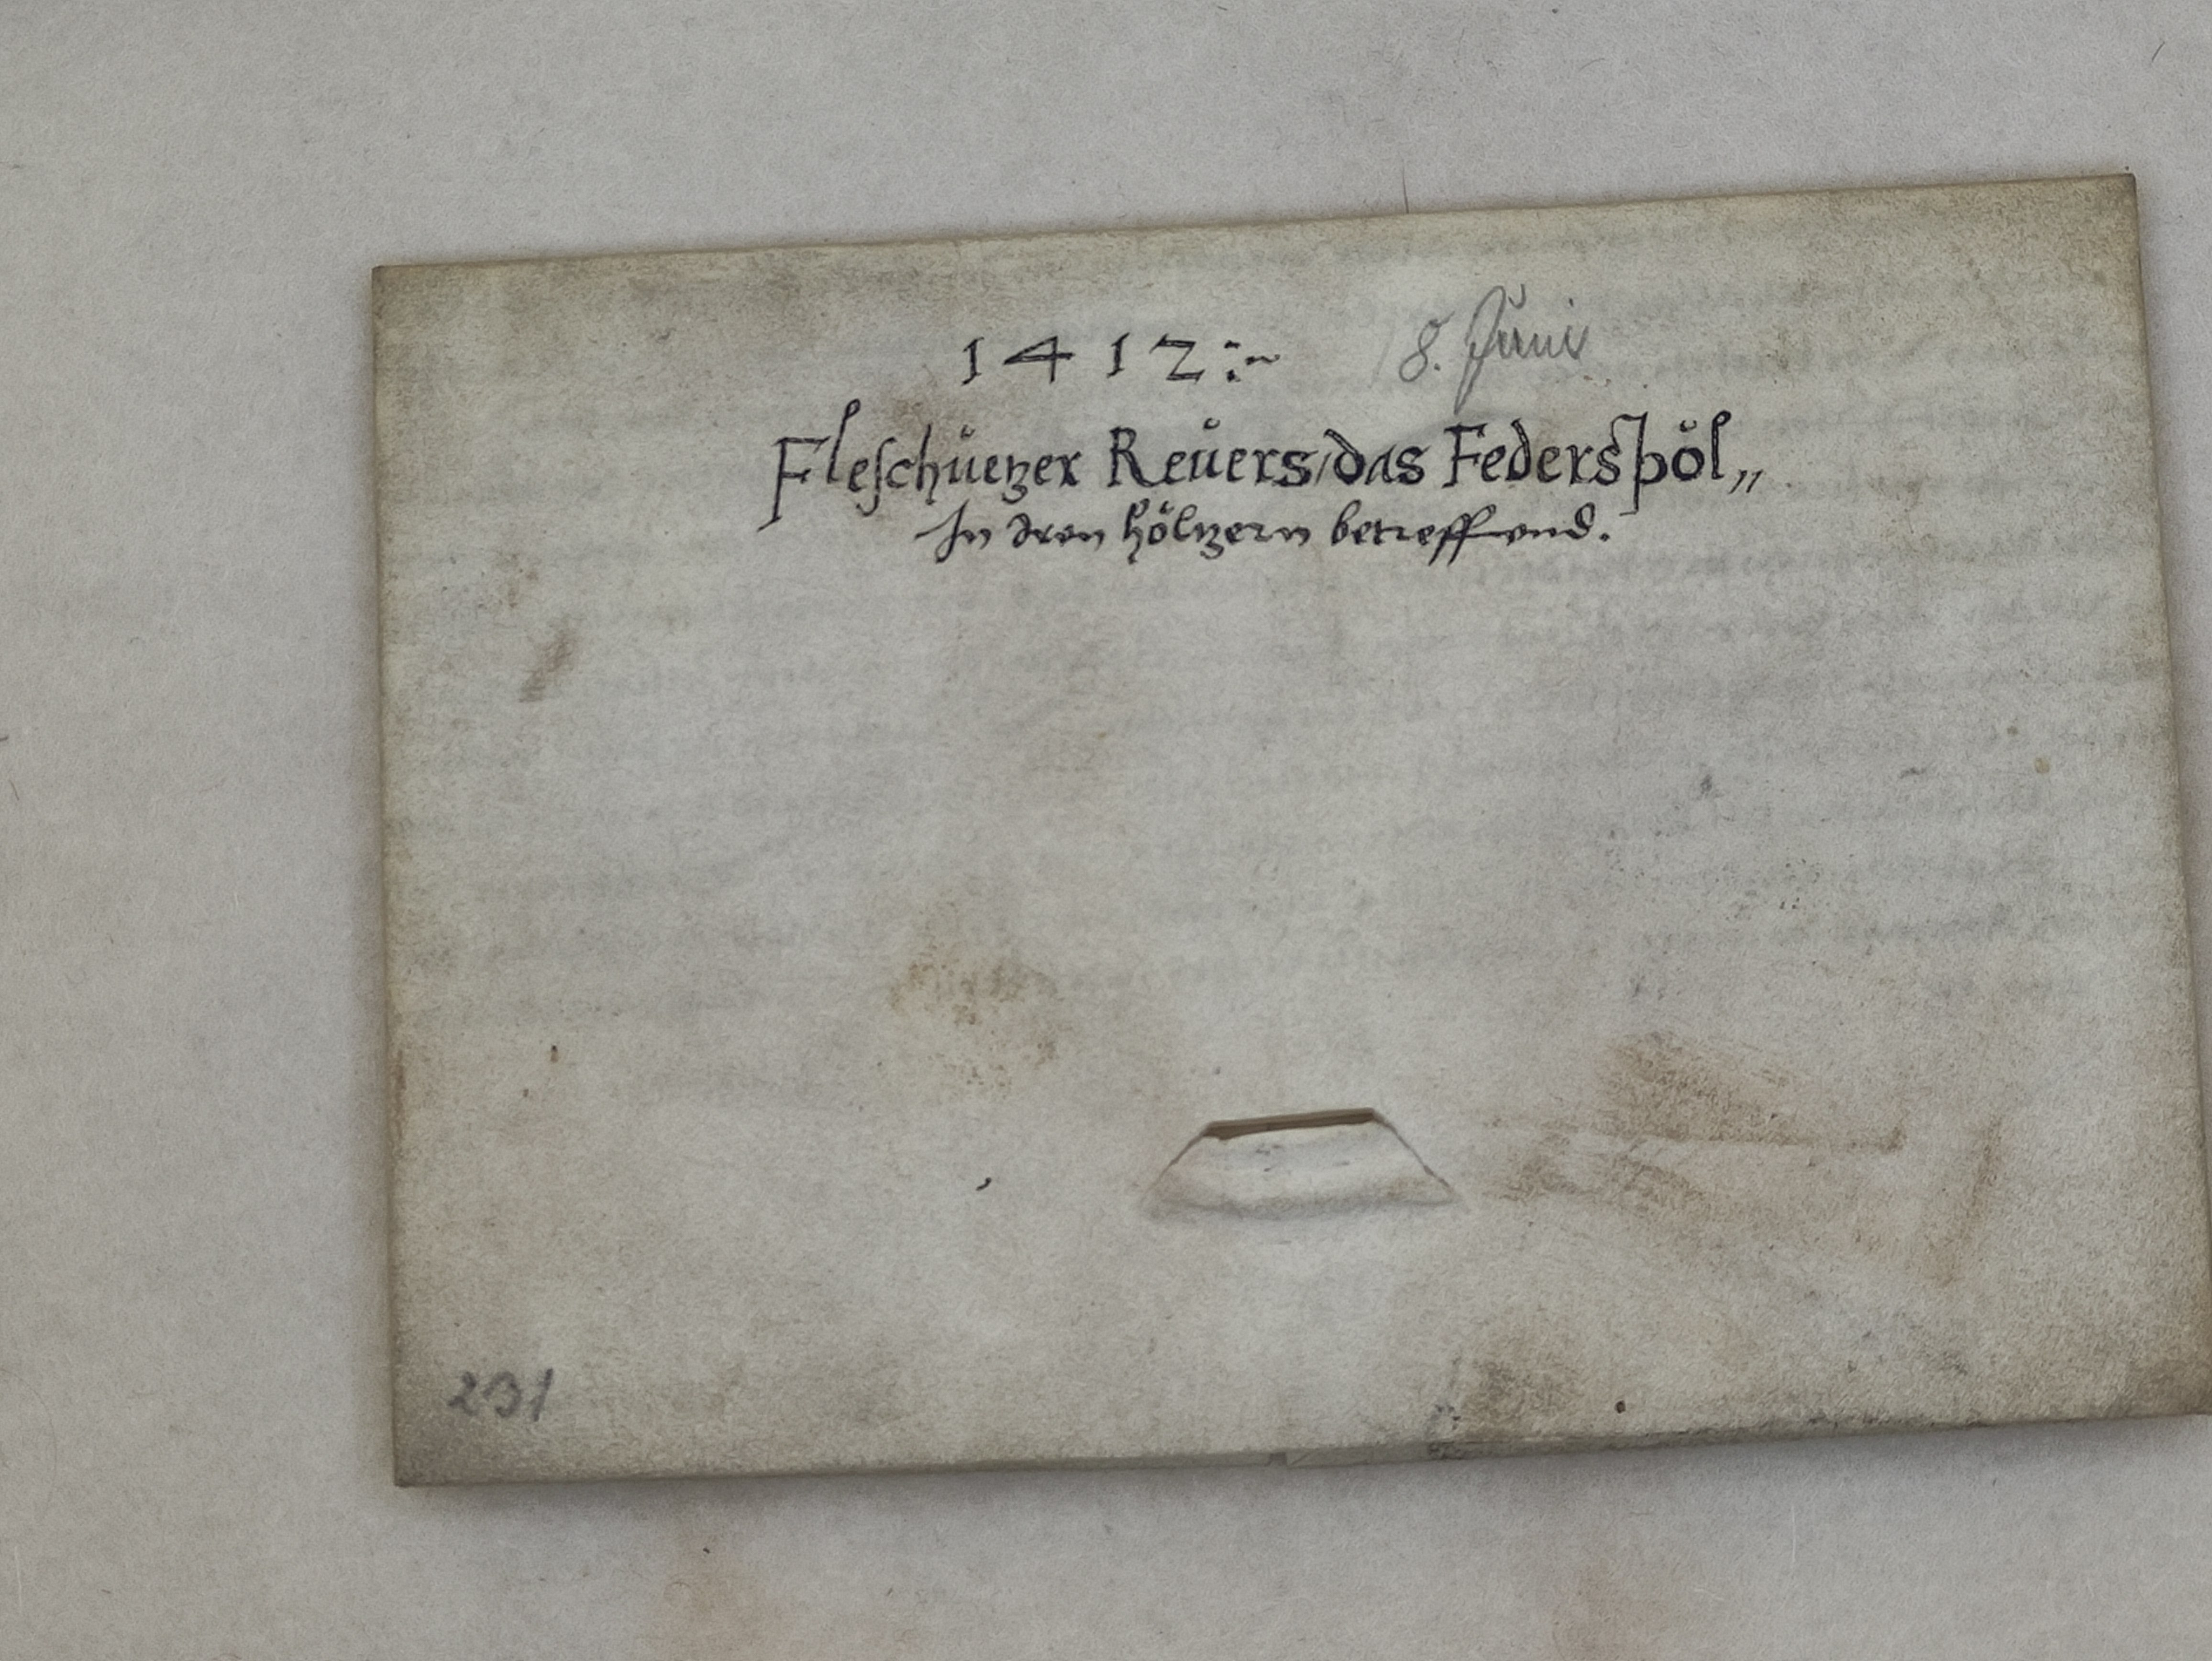 1412:~ 8. Juni
Fleschúetzer Reúers/das Federspöl„
In dren höltzern betreffend.
231